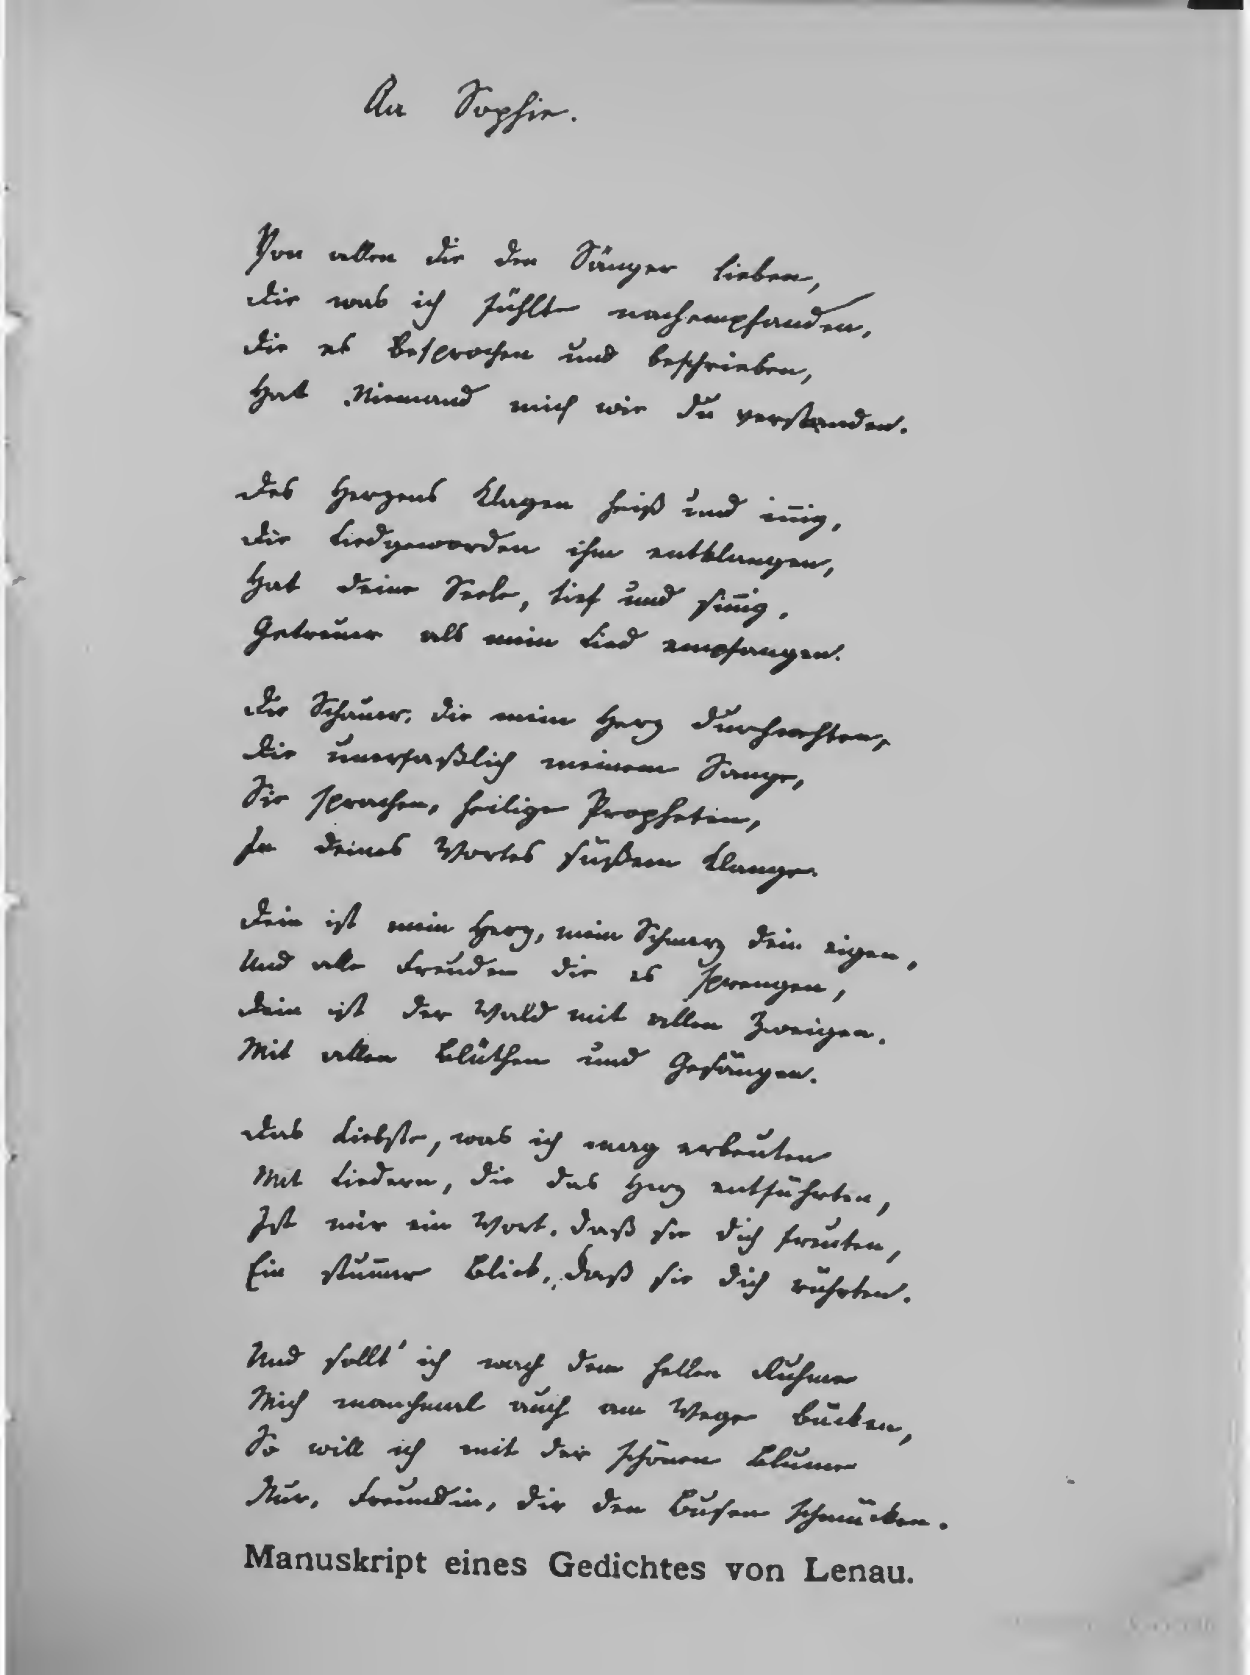 An Sophie.
Von allen die den Sänger lieben,
Die was ich fühlte nachempfanden,
Die es besprochen und beschrieben,
Hat Niemand mich wie du verstanden.
Des Herzens Klagen heiß und iñig,
Die Liedgeworden ihm entklangen,
Hat deine Seele, tief und siñig,
Getreuer als mein Lied empfangen.
Die Schauer, die mein Herz durchwehten,
Die unerfaßlich meinem Sange,
Sie sprachen, heilige Prophetin,
In deines Wortes süßem Klange.
Dein ist mein Herz, mein Schmerz dein eigen,
Und alle Freuden die es sprengen,
Dein ist der Wald mit allen Zweigen,
Mit allen Blüthen und Gesängen.
Das Liebste, was ich mag erbeuten
Mit Liedern, die das Herz entführten,
Ist mir ein Wort, daß sie dich freuten,
Ein stum̄er Blick, daß sie dich rührten.
Und sollt' ich nach dem hellen Ruhme
Mich manchmal auch am Wege bücken,
So will ich mit der schönen Blume
Nur, Freundin, dir den Busen schmücken.
Manuskript eines Gedichtes von Lenau.